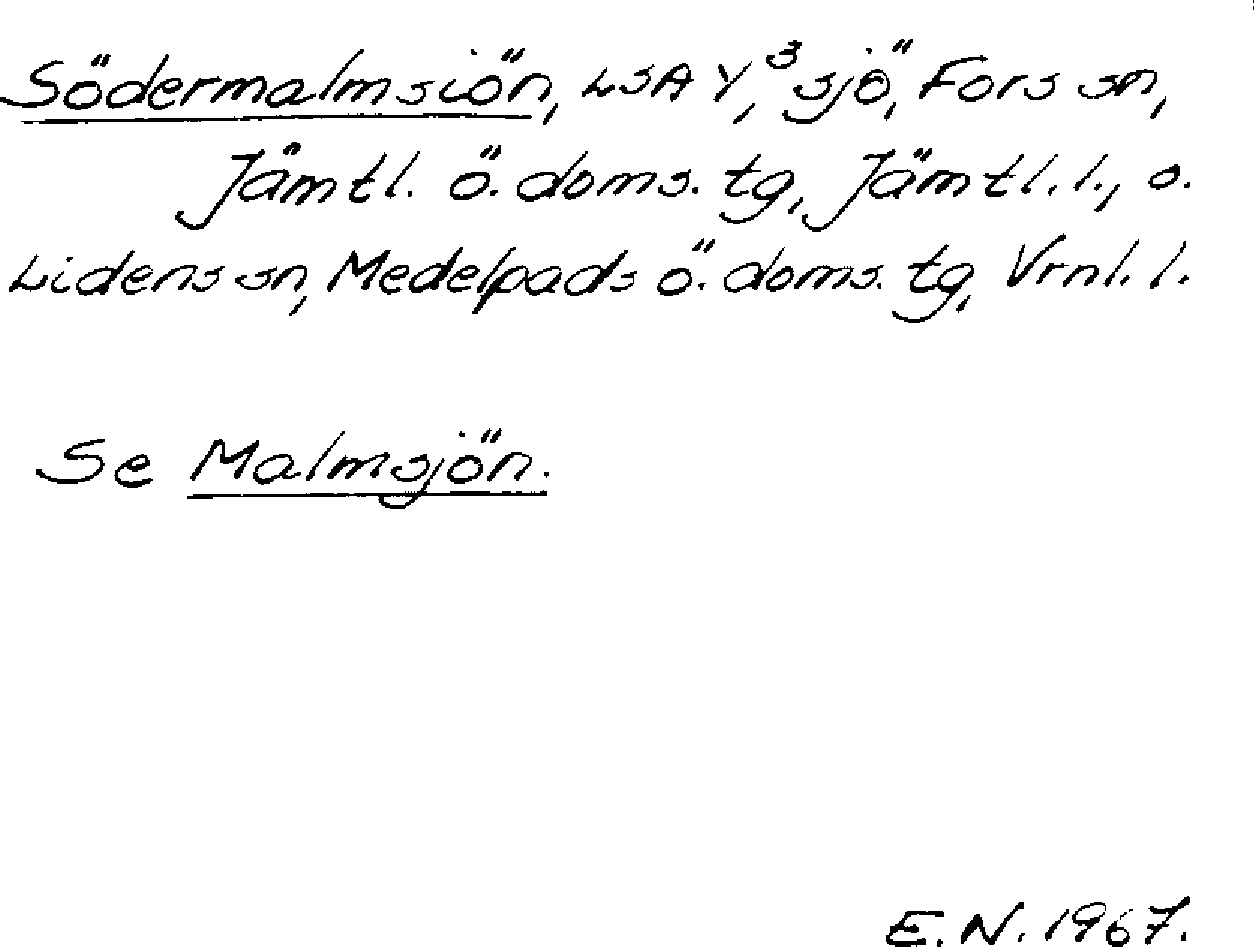 Södermalmsiön, LSA Y,³ sjö, Fors sn,
Jämtl. ö. doms. tg, Jämtl. l., o.
Lidens sn, Medelpads ö. doms. tg, Vrnl. l.
Se Malmsjön.
E.N. 1967.